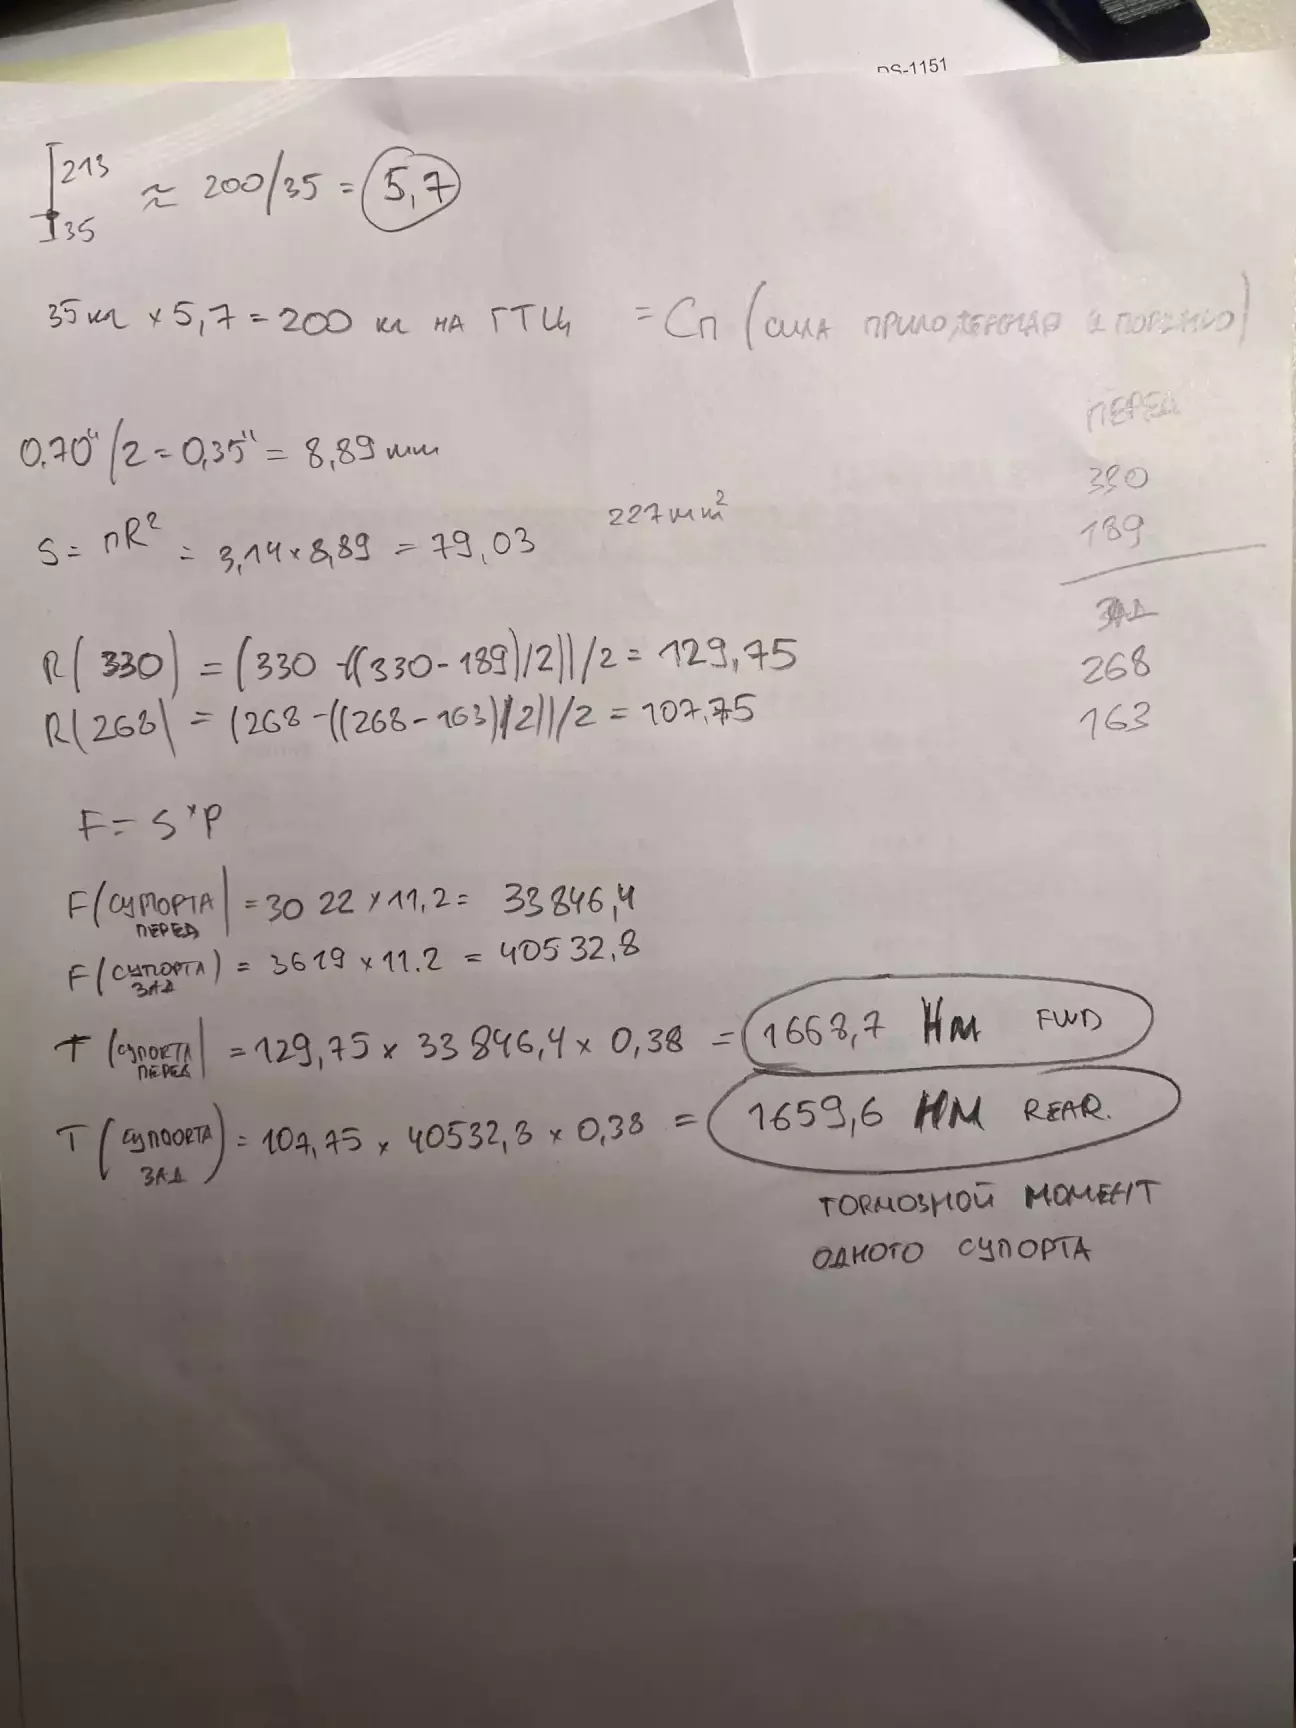 DS-1151
213
35
≈ 200/35 = 5,7
35 кг × 5,7 = 200 кг на ГТЦ = Сп (сила приложенная к поршню)
0.70"/2 = 0,35" = 8,89 мм
S = πR² = 3,14 × 8,89 = 79,03 227 мм²
ПЕРЕД
330
189
ЗАД
268
163
R(330) = (330 - ((330-189)/2))/2 = 129,75
R(268) = (268 - ((268-163)/2))/2 = 107,75
F = S × P
F(СУПОРТА ПЕРЕД) = 3022 × 11,2 = 33846,4
F(СУПОРТА ЗАД) = 3619 × 11.2 = 40532,8
T(СУПОРТА ПЕРЕД) = 129,75 × 33846,4 × 0,38 = 1668,7 НМ FWD
T(СУПООРТА ЗАД) = 107,75 × 40532,8 × 0,38 = 1659,6 НМ REAR.
ТОРМОЗНОЙ МОМЕНТ
ОДНОГО СУПОРТА